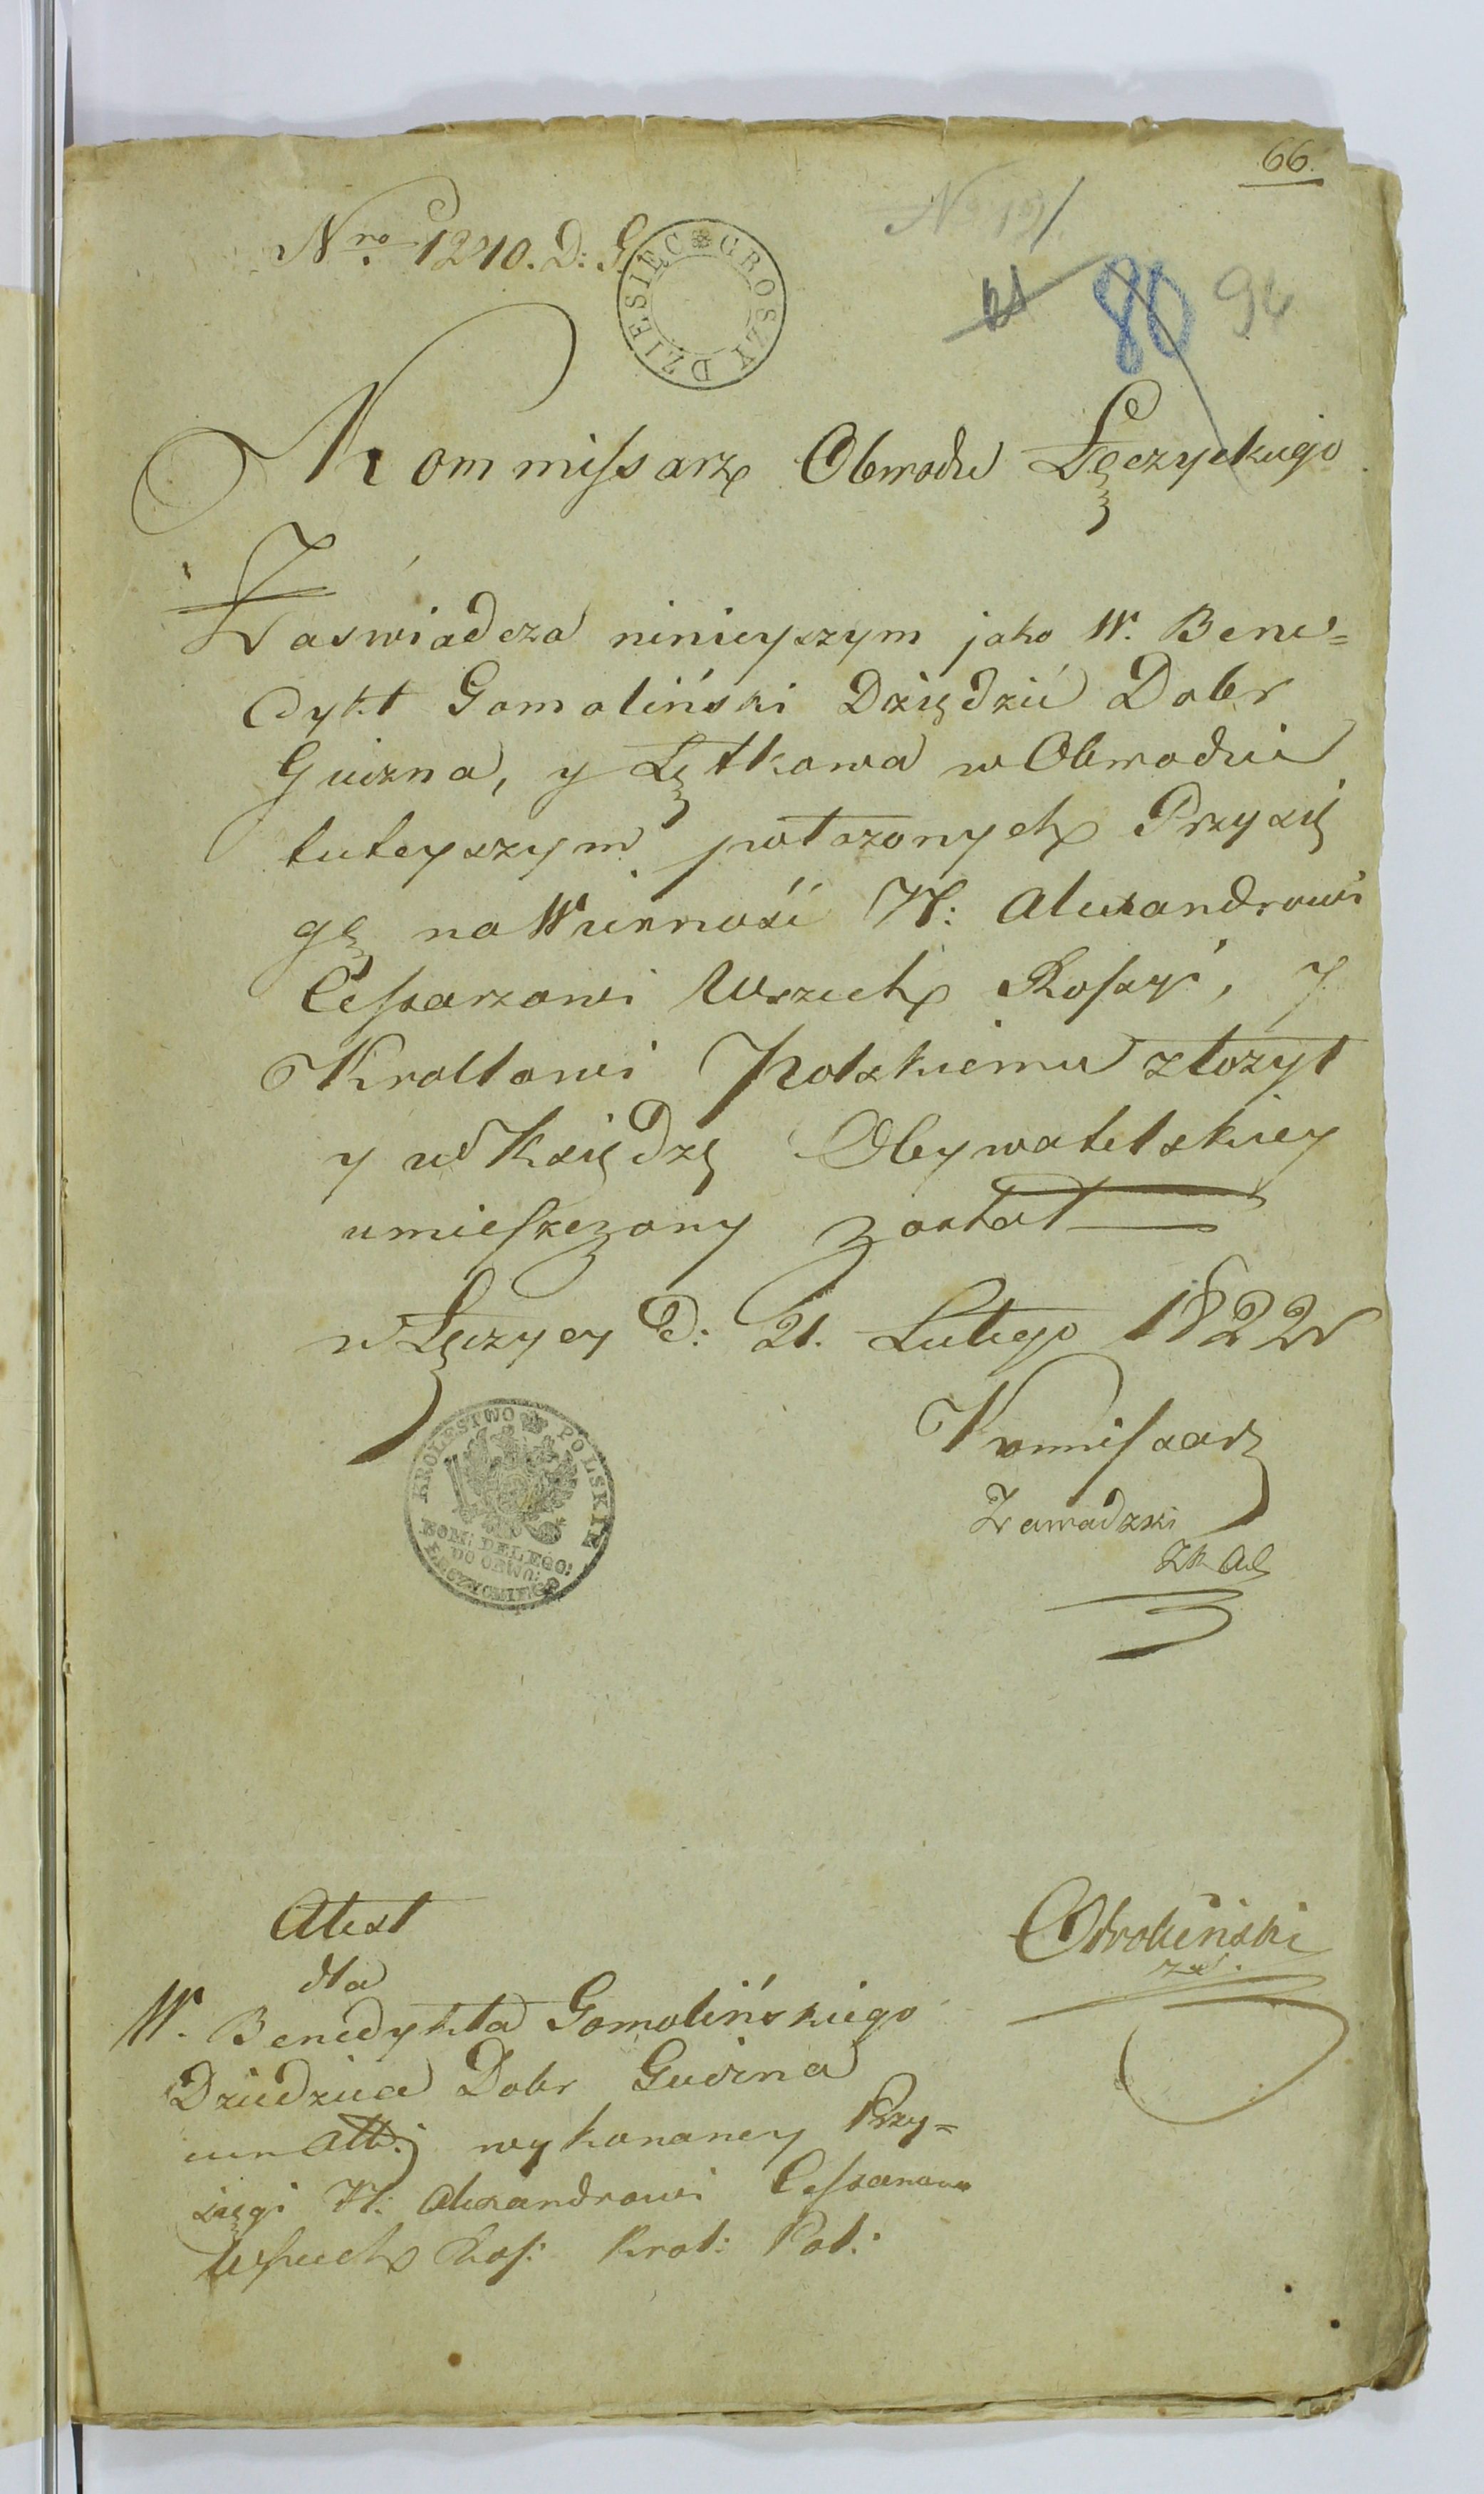 66.
Nro 1240. D: G
DZIESIĘC GROSZY
80 94
Kommissarz Obwodu Łęczyckiego
Zaświadcza ninieyszym jako W. Bene=
dykt Gomoliński Dziędzić Dobr
Guizna, y Łętkowa w Obwodzie
tuteyszym położonych Przysię
gę na Wierność N: Alexandrowi
Cessarzowi Wszech Rossyi, y
Krollowi Polskiemu złożył
y w Księdzę Obywatelskiey
umieszczony został
w Łęczycy D: 21. Lutego 1822 r
Kommissarz
Zawadzki
KROLESTWO POLSKIE
KOM: DELEGO:
DO OBWO:
ŁĘCZYCKIEGO
Atest
dla
W. Benedykta Gomolińskiego
Dziedzica Dobr Guizna
wykonaney Przy=
sięgi N: Alexandrowi Cessarzowi
Wszech Ros: Krol: Pol: